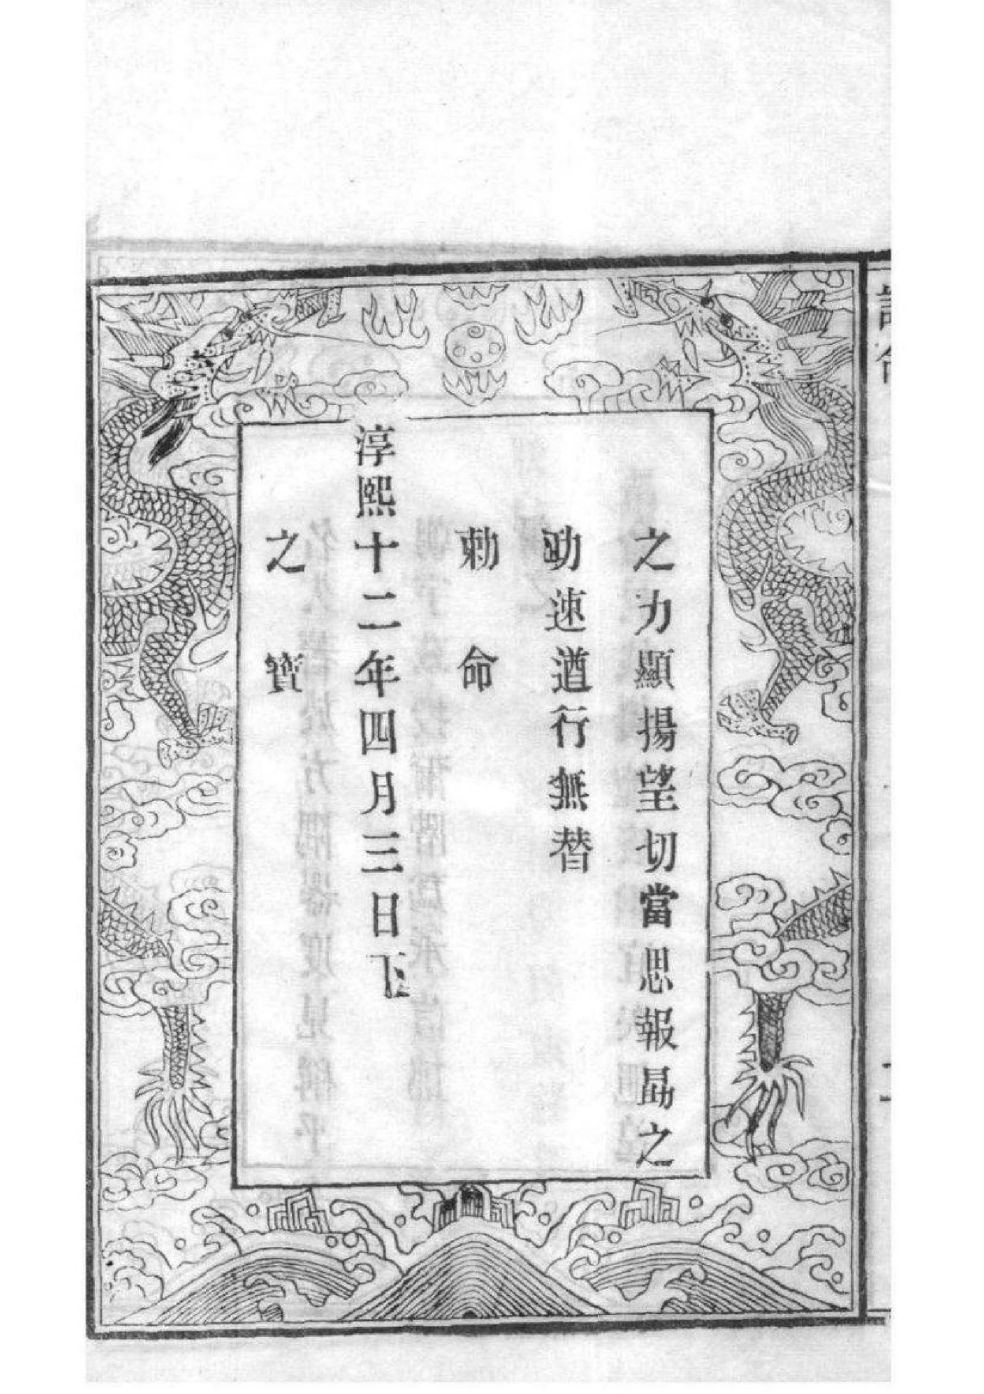 之力顯揚望切當思報勗之
速遒行無替
勅命
淳熙十二年四月三日下
之寶